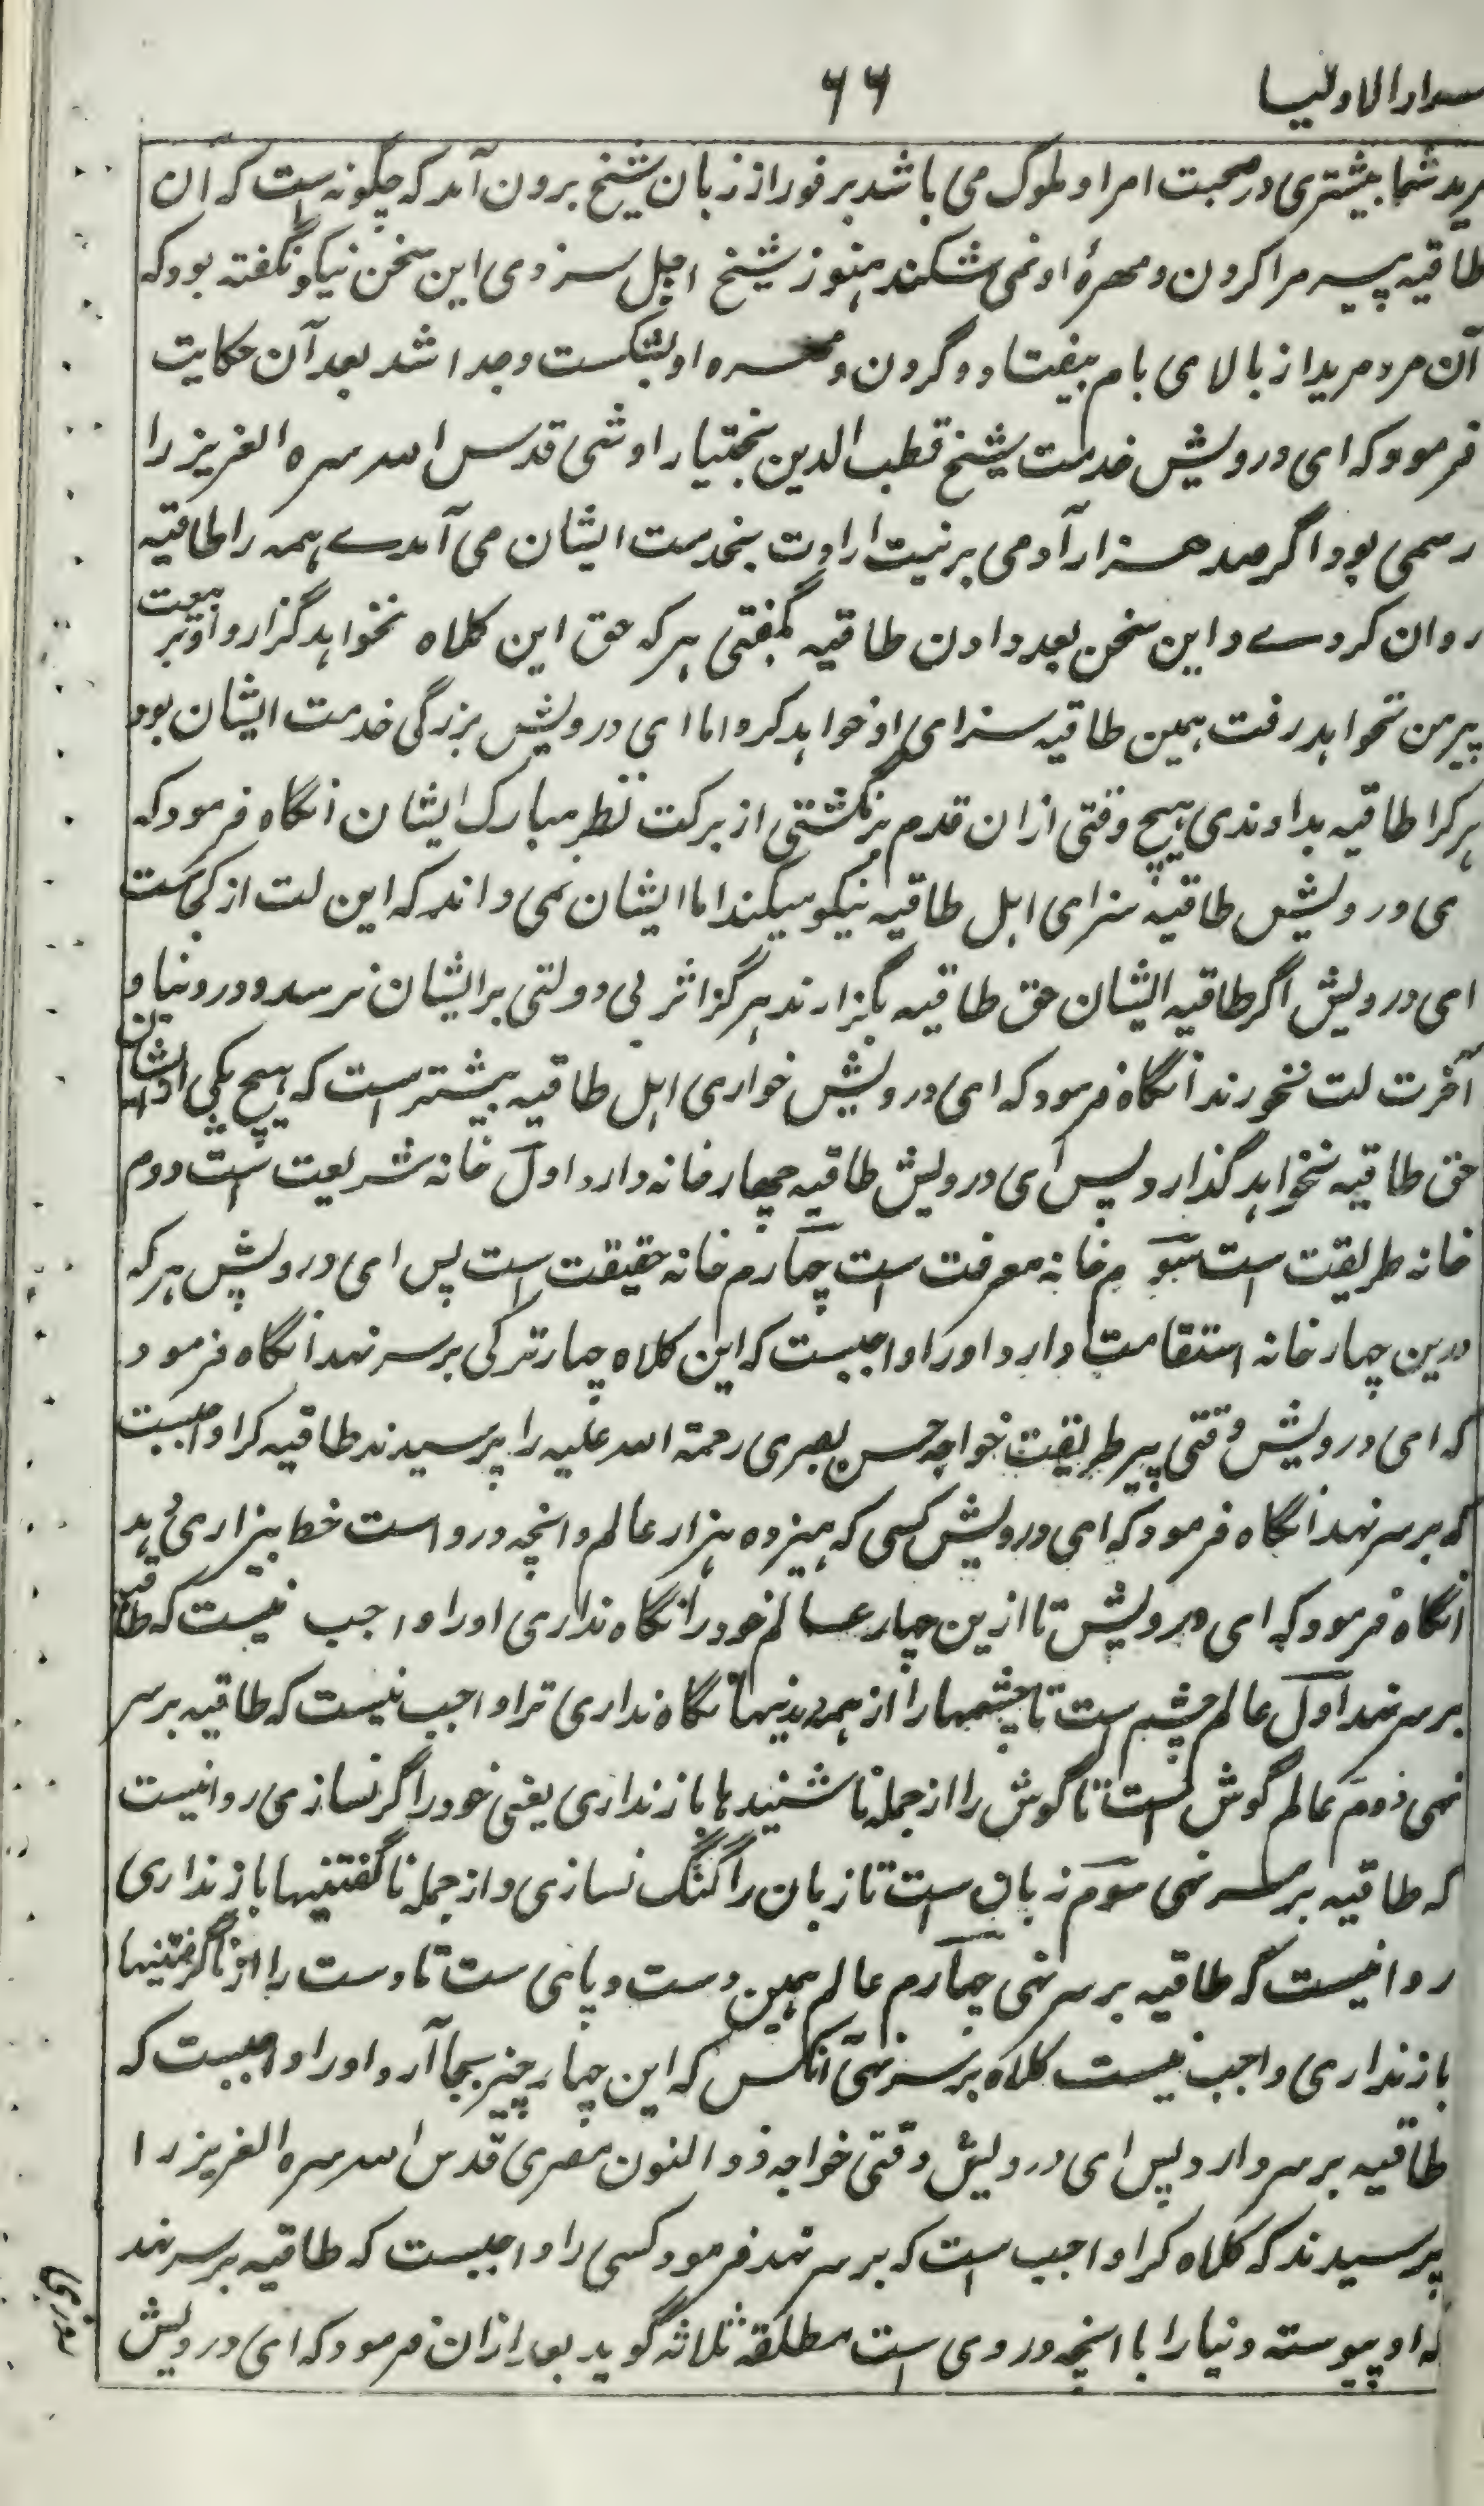 سرار الاولیا ۶۶
مرید شما بیشتری در صحبت امرا و ملوک می باشد بر فور از زبان شیخ برون آمد که چگونه است که آن
طاقیه پیر مرا گردن و مهرهٔ او نمی شکند هنوز شیخ اجل سرزدی این سخن نیکو نگفته بود که
آن مرد مرید از بالای بام بیفتاد و گردن و مهره او بشکست و جدا شد بعد آن حکایت
فرمود که ای درویش خدمت شیخ قطب الدین بختیار اوشی قدس الله سره العزیز را
رسمی بود اگر صد هزار آدمی بر نیت ارادت بخدمت ایشان می آمدے همه را طاقیه
روان کردے و این سخن بعد دادن طاقیه بگفتی هر که حق این کلاه نخواهد گزارد و او بر بیعت
پیر من نخواهد رفت همین طاقیه سزای او خواهد کرد اما ای درویش بزرگی خدمت ایشان بود
هر کرا طاقیه بدادندی هیچ وقتی ازان قدم برنگشتی از برکت نظر مبارک ایشان انگاه فرمود که
ای درویش طاقیه سزای اهل طاقیه نیکو میکند اما ایشان نمی داند که این لت از کجاست
ای درویش اگر طاقیه ایشان حق طاقیه بگزارند هرگز اثر بی دولتی بر ایشان نرسد و در دنیا و
آخرت لت نخورند انگاه فرمود که ای درویش خواری اهل طاقیه بیشتر است که هیچ یکی از ایشان
حق طاقیه نخواهد گذارد پس ای درویش طاقیه چهار خانه دارد اول خانه شریعت است دوم
خانه طریقت است سوم خانه معرفت است چهارم خانه حقیقت است پس ای درویش هر که
درین چهار خانه استقامت دارد او را واجبست که این کلاه چهار ترکی بر سر نهد انگاه فرمود
که ای درویش وقتی پیر طریقت خواجه حسن بصری رحمة الله علیه را پرسیدند طاقیه کرا واجبست
که بر سر نهد انگاه فرمود که ای درویش کسی که هیزده هزار عالم و انچه دروست خط بیزاری دهد
انگاه فرمود که ای درویش تا ازین چهار عالم خود را نگاه نداری او را واجب نیست که طاقیه
بر سر نهد اول عالم چشم است تا چشمها را از همه دیدنیها نگاه نداری ترا واجب نیست که طاقیه بر سر
نهی دوم عالم گوش است تا گوش را از جمله ناشنیدها باز نداری یعنی خود را گر نسازی روا نیست
که طاقیه بر سر نهی سوم زبان است تا زبان را گنگ نسازی و از جمله ناگفتنیها باز نداری
روا نیست که طاقیه بر سر نهی چهارم عالم همین دست و پای ست تا دست را از ناگرفتنیها
باز نداری واجب نیست کلاه بر سر نهی آنکس که این چهار چیز بجا آرد او را واجبست که
طاقیه بر سر دارد پس ای درویش وقتی خواجه ذو النون مصری قدس الله سره العزیز را
پرسیدند که کلاه کرا واجب است که بر سر نهد فرمود کسی را واجبست که طاقیه بر سر نهد
که او پیوسته دنیا را با انچه در وی است مطلقه ثلاثه گوید بعد ازان فرمود که ای درویش